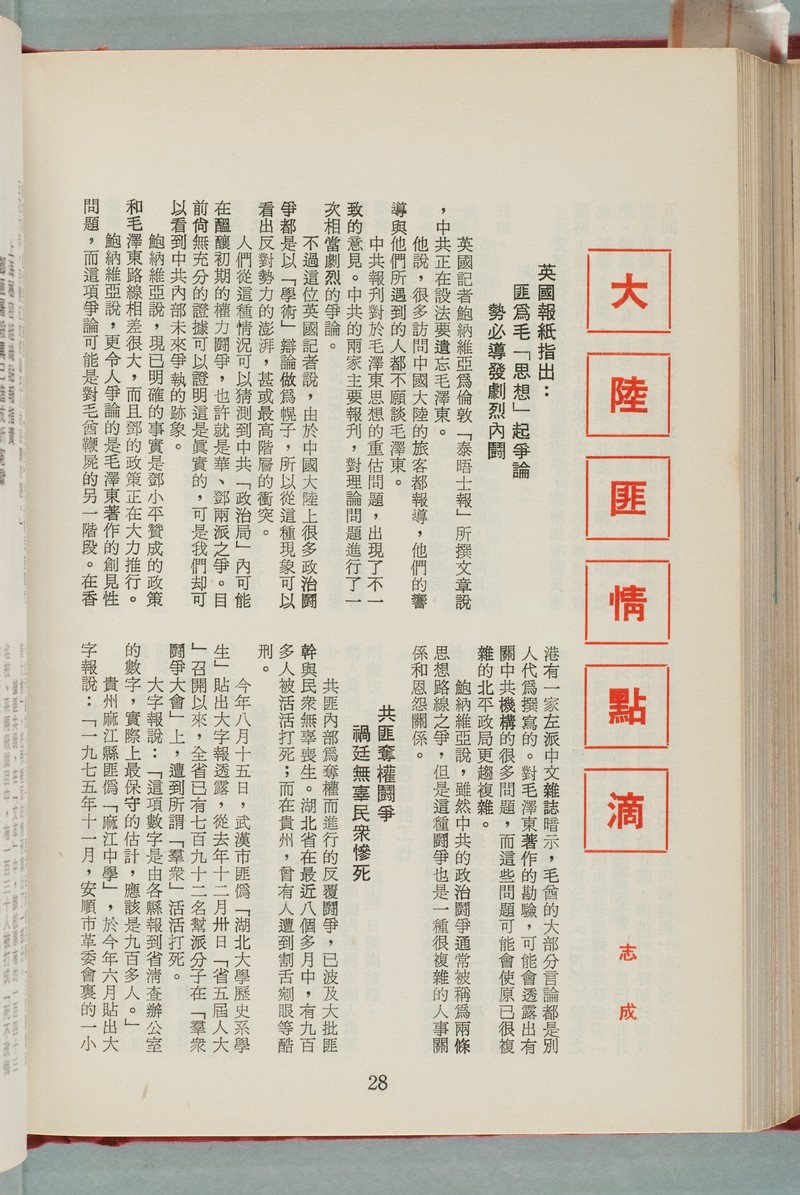 大陸匪情點滴
志成
英國報紙指出：
匪為毛「思想」起爭論
勢必導發劇烈內鬪
英國記者鮑納維亞為倫敦「泰晤士報」所撰文章說
，中共正在設法要遺忘毛澤東。
他說，很多訪問中國大陸的旅客都報導，他們的響
導與他們所遇到的人都不願談毛澤東。
中共報刊對於毛澤東思想的重估問題，出現了不一
致的意見。中共的兩家主要報刊，對理論問題進行了一
次相當劇烈的爭論。
不過這位英國記者說，由於中國大陸上很多政治鬪
爭都是以「學術」辯論做為幌子，所以從這種現象可以
看出反對勢力的澎湃，甚或最高階層的衝突。
人們從這種情況可以猜測到中共「政治局」內可能
在醞釀初期的權力鬪爭，也許就是華、鄧兩派之爭。目
前尚無充分的證據可以證明這是眞實的，可是我們却可
以看到中共內部未來爭執的跡象。
鮑納維亞說，現已明確的事實是鄧小平贊成的政策
和毛澤東路線相差很大，而且鄧的政策正在大力推行。
鮑納維亞說，更令人爭論的是毛澤東著作的創見性
問題，而這項爭論可能是對毛酋鞭屍的另一階段。在香
港有一家左派中文雜誌暗示，毛酋的大部分言論都是別
人代為撰寫的。對毛澤東著作的勘驗，可能會透露出有
關中共機構的很多問題，而這些問題可能會使原已很複
雜的北平政局更趨複雜。
鮑納維亞說，雖然中共的政治鬪爭通常被稱為兩條
思想路線之爭，但是這種鬪爭也是一種很複雜的人事關
係和恩怨關係。
共匪奪權鬪爭
禍延無辜民衆慘死
共匪內部為奪權而進行的反覆鬪爭，已波及大批匪
幹與民衆無辜喪生。湖北省在最近八個多月中，有九百
多人被活活打死；而在貴州，曾有人遭到割舌剜眼等酷
刑。
今年八月十五日，武漢市匪偽「湖北大學歷史系學
生」貼出大字報透露，從去年十二月卅日「省五屆人大
」召開以來，全省已有七百九十二名幫派分子在「羣衆
鬪爭大會」上，遭到所謂「羣衆」活活打死。
大字報說：「這項數字是由各縣報到省淸查辦公室
的數字，實際上最保守的估計，應該是九百多人。」
貴州麻江縣匪偽「麻江中學」，於今年六月貼出大
字報說：「一九七五年十一月，安順市革委會裏的一小
28